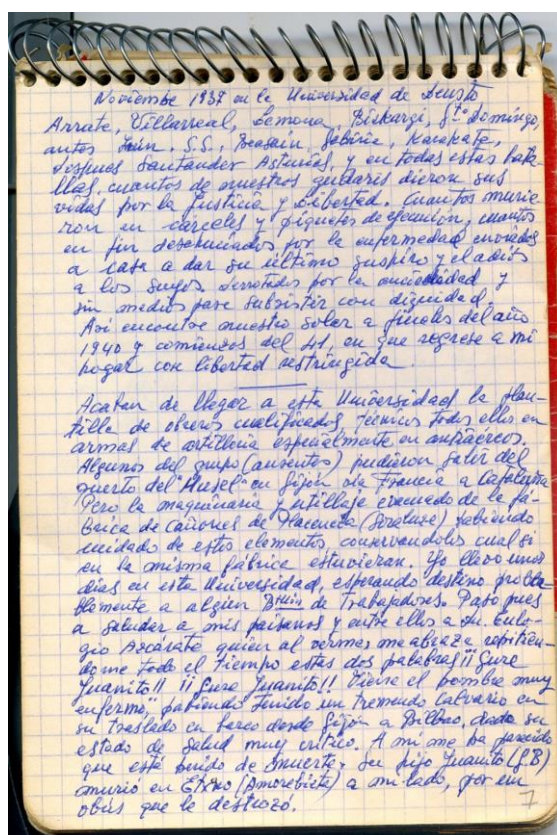 Noviembre 1937 en la Universidad de Deusto
Arrate, Villarreal, Lemona, Biskargi, Sto. Domingo,
antes Irún, S.S., Beasain, Sabiria, Karakate,
después Santander Asturias, y en todas estas bata-
llas, cuantos de nuestros gudaris dieron sus
vidas por la Justicia y Libertad. Cuantos murie-
ron en cárceles y piquetes de ejecución, cuantos
en fin desahuciados por la enfermedad enviados
a casa a dar su último suspiro y el adios
a los suyos derrotados por la ancianidad y
sin medios para subsistir con dignidad.
Asi encontre nuestro solar a finales del año
1940 y comienzos del 41, en que regrese a mi
hogar con libertad restringida.
Acaban de llegar a esta Universidad la plan-
tilla de obreros cualificados, técnicos todos ellos en
armas de artilleria especialmente en antiaéreos.
Algunos del grupo (ausentes) pudieron salir del
puerto del "Musel" en Gijón vía Francia a Cataluña
Pero la maquinaria y utillaje evacuado de la fá-
brica de Cañones de Placencia (Soraluze) habiendo
cuidado de estos elementos conservandolos cual si
en la misma fábrica estuvieran. Yo llevo unos
días en esta Universidad, esperando destino proba-
blemente a algún Btllón de Trabajadores. Paso pues
a saludar a mis paisanos y entre ellos a Dn. Eulo-
gio Azcárate quien al verme, me abraza repitien-
dome todo el tiempo estas dos palabras ¡¡Gure
Juanito!! ¡¡Gure Juanito!! Viene el hombre muy
enfermo, habiendo tenido un tremendo Calvario en
su traslado en barco desde Gijón a Bilbao, dado su
estado de salud muy crítico. A mi me ha parecido
que está herido de muerte, su hijo Juanito (g.B)
murió en Etxno (Amorebieta) a mi lado, por un
obús que le destrozó.
7